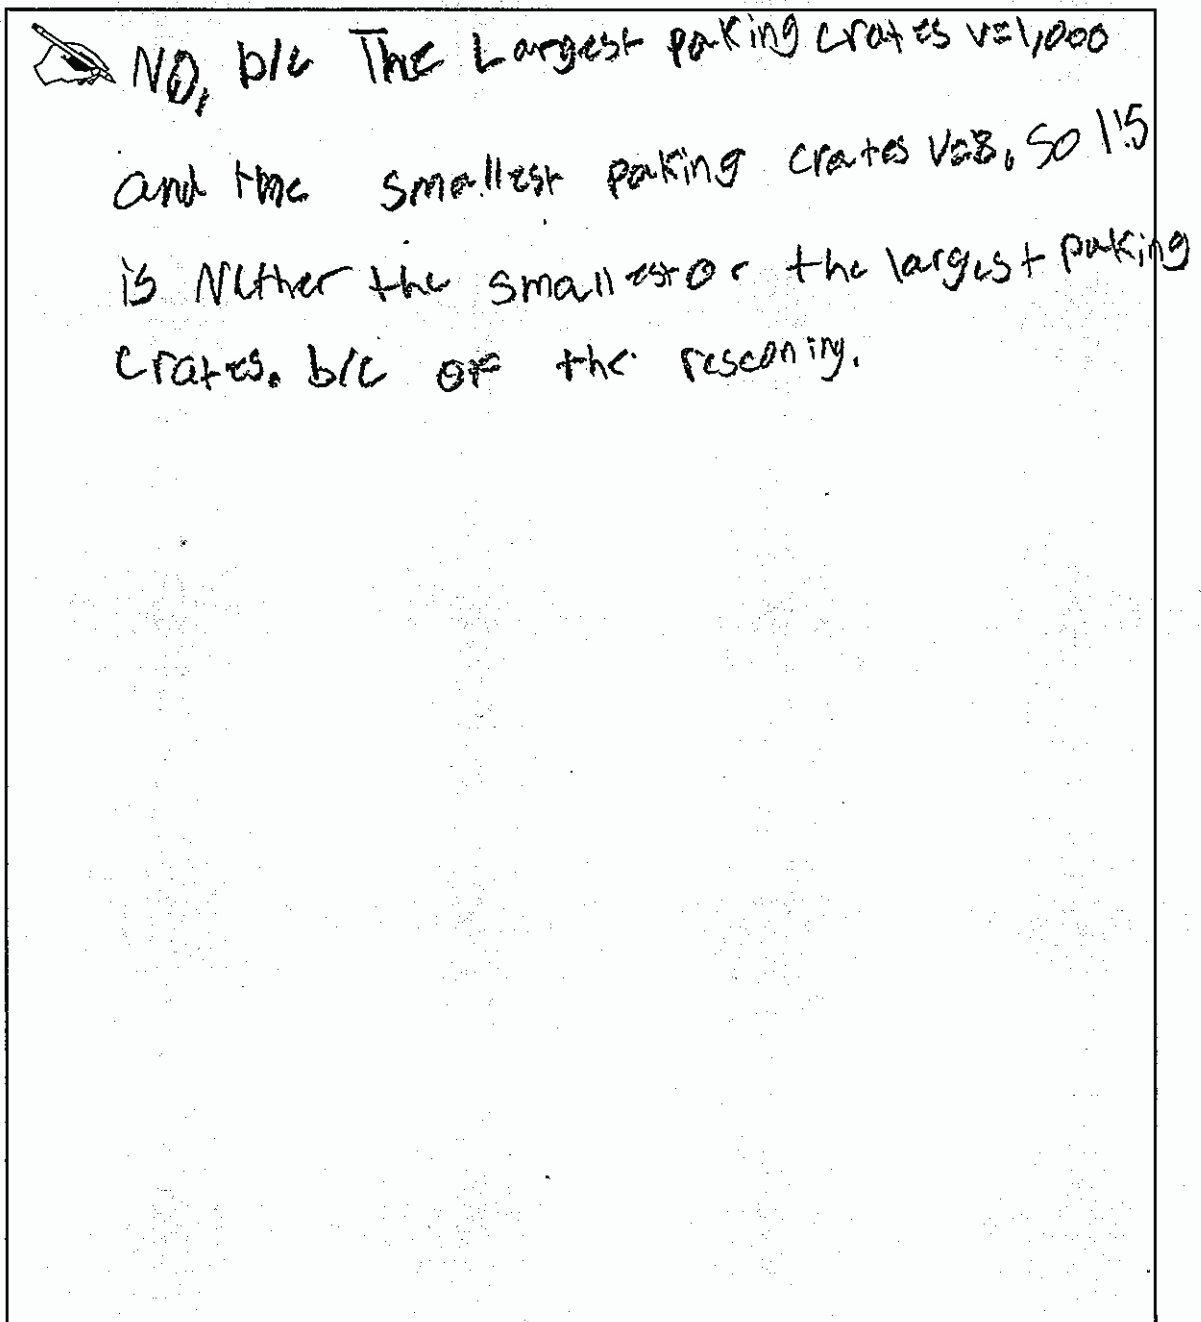 NO, b/c The Largest paking crates v=1,000
and the smallest paking crates v=8, so 1:5
is Nether the smallest or the largest paking
crates. b/c of the resconing.